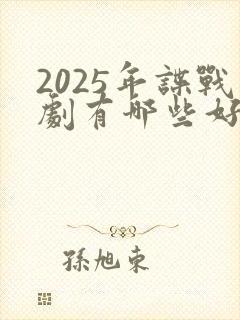 2025年諜戰
劇有哪些好
孫旭東